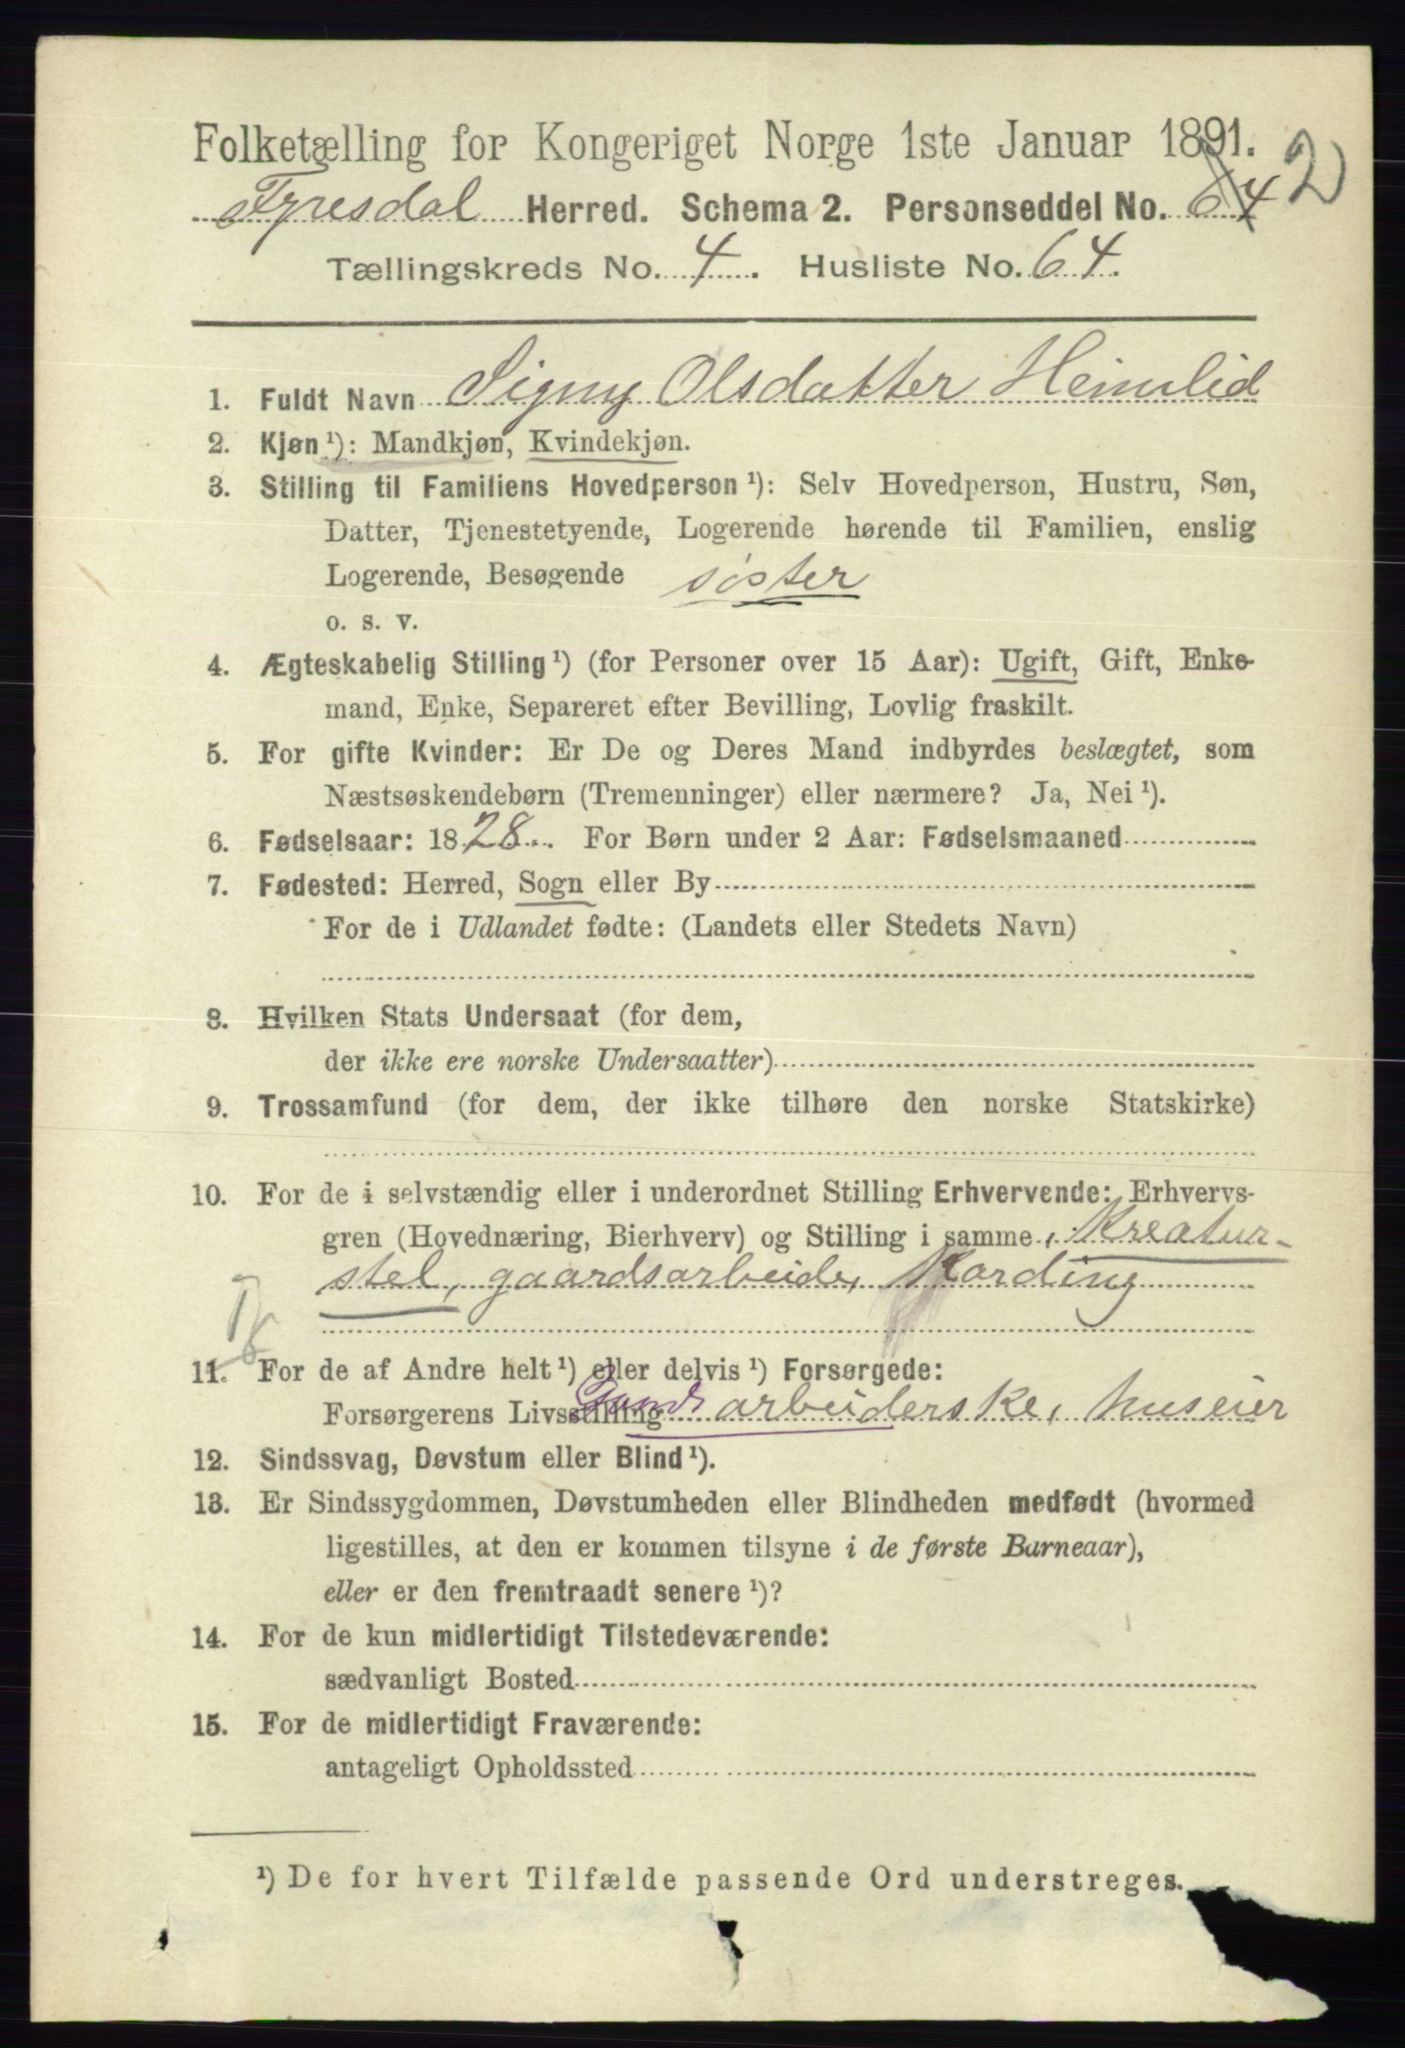 Folketælling for Kongeriget Norge 1ste Januar 1891.
Fyresdal Herred. Schema 2. Personseddel No. 64 2
Tællingskreds No. 4. Husliste No. 64.
1. Fuldt Navn Signy Olsdatter Heimlid
2. Kjøn ¹): Mandkjøn, Kvindekjøn.
3. Stilling til Familiens Hovedperson ¹): Selv Hovedperson, Hustru, Søn,
Datter, Tjenestetyende, Logerende hørende til Familien, enslig
Logerende, Besøgende søster
o. s. v.
4. Ægteskabelig Stilling ¹) (for Personer over 15 Aar): Ugift, Gift, Enke-
mand, Enke, Separeret efter Bevilling, Lovlig fraskilt.
5. For gifte Kvinder: Er De og Deres Mand indbyrdes beslægtet, som
Næstsøskendebørn (Tremenninger) eller nærmere? Ja, Nei ¹).
6. Fødselsaar: 1828. For Børn under 2 Aar: Fødselsmaaned
7. Fødested: Herred, Sogn eller By
For de i Udlandet fødte: (Landets eller Stedets Navn)
8. Hvilken Stats Undersaat (for dem,
der ikke ere norske Undersaatter)
9. Trossamfund (for dem, der ikke tilhøre den norske Statskirke)
10. For de i selvstændig eller i underordnet Stilling Erhvervende: Erhvervs-
gren (Hovednæring, Bierhverv) og Stilling i samme, Kreatur-
stel, gaardsarbeide, Karding
11. For de af Andre helt ¹) eller delvis ¹) Forsørgede:
Forsørgerens Livsstilling arbeiderske, huseier
12. Sindssvag, Døvstum eller Blind ¹).
13. Er Sindssygdommen, Døvstumheden eller Blindheden medfødt (hvormed
ligestilles, at den er kommen tilsyne i de første Barneaar),
eller er den fremtraadt senere ¹)?
14. For de kun midlertidigt Tilstedeværende:
sædvanligt Bosted
15. For de midlertidigt Fraværende:
antageligt Opholdssted
¹) De for hvert Tilfælde passende Ord understreges.